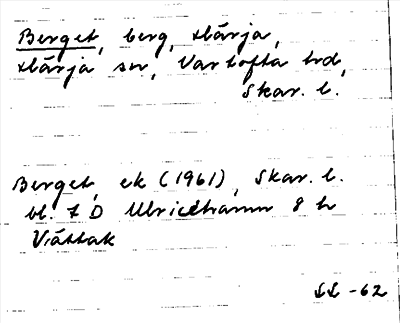 Berget, berg, Härja,
Härja sn, Vartofta hd,
Skar. l.
Berget, ek (1961), Skar. l.
bl. 7 D Ulricehamn 8 h
Vättak
LL -62